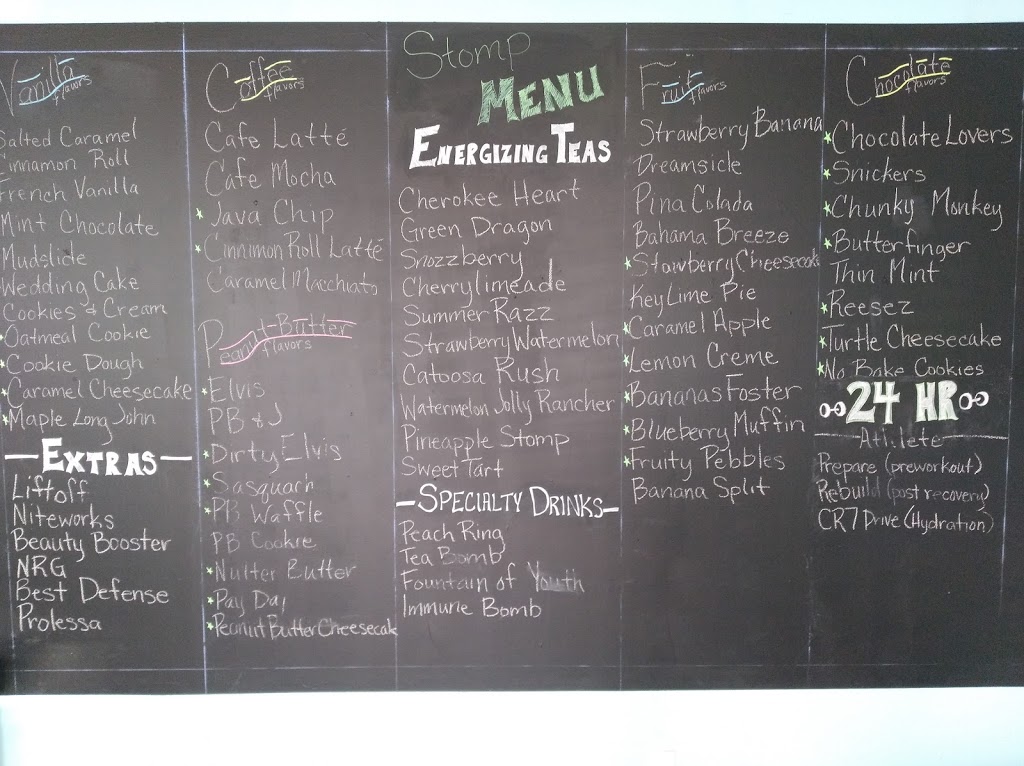 Vanilla
flavors
Salted Caramel
Cinnamon Roll
French Vanilla
Mint Chocolate
Mudslide
Wedding Cake
Cookies & Cream
*Oatmeal Cookie
*Cookie Dough
*Caramel Cheesecake
*Maple Long John
EXTRAS
Liftoff
Niteworks
Beauty Booster
NRG
Best Defense
Prolessa
Coffee
flavors
Cafe Latté
Cafe Mocha
*Java Chip
*Cinnimon Roll Latté
Caramel Macchiato
Peanut-Butter
flavors
*Elvis
PB & J
*Dirty Elvis
*Sasquach
*PB Waffle
PB Cookie
*Nutter Butter
*Pay Day
*Peanut Butter Cheesecake
Stomp
MENU
ENERGIZING TEAS
Cherokee Heart
Green Dragon
Snozzberry
Cherrylimeade
Summer Razz
Strawberry Watermelon
Catoosa Rush
Watermelon Jolly Rancher
Pineapple Stomp
Sweet Tart
-SPECIALTY DRINKS-
Peach Ring
Tea Bomb
Fountain of Youth
Immune Bomb
Fruit
flavors
Strawberry Banana
Dreamsicle
Pina Colada
Bahama Breeze
*Stawberry Cheesecake
Key Lime Pie
*Caramel Apple
*Lemon Creme
*Bananas Foster
*Blueberry Muffin
*Fruity Pebbles
Banana Split
Chocolate
flavors
*Chocolate Lovers
*Snickers
*Chunky Monkey
*Butterfinger
Thin Mint
*Reesez
*Turtle Cheesecake
*No Bake Cookies
24 HR
Athlete
Prepare (preworkout)
Rebuild (post recovery)
CR7 Drive (Hydration)